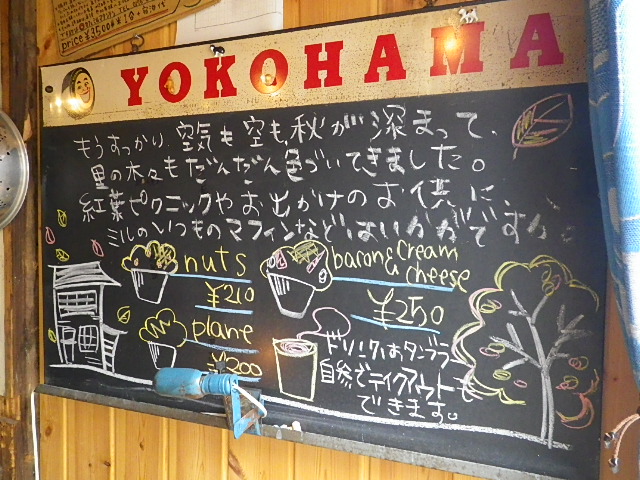 price ¥35,000
YOKOHAMA
もうすっかり、空気も空も、秋が深まって、
里の木々もだんだん色づいてきました。
紅葉ピクニックやお出かけのお供に、
ミルのいつものマフィンなどはいかがですか。
nuts
¥210
bacon & cream cheese
¥250
plane
¥200
ドリンクはタンブラー
自参でテイクアウトも
できます。